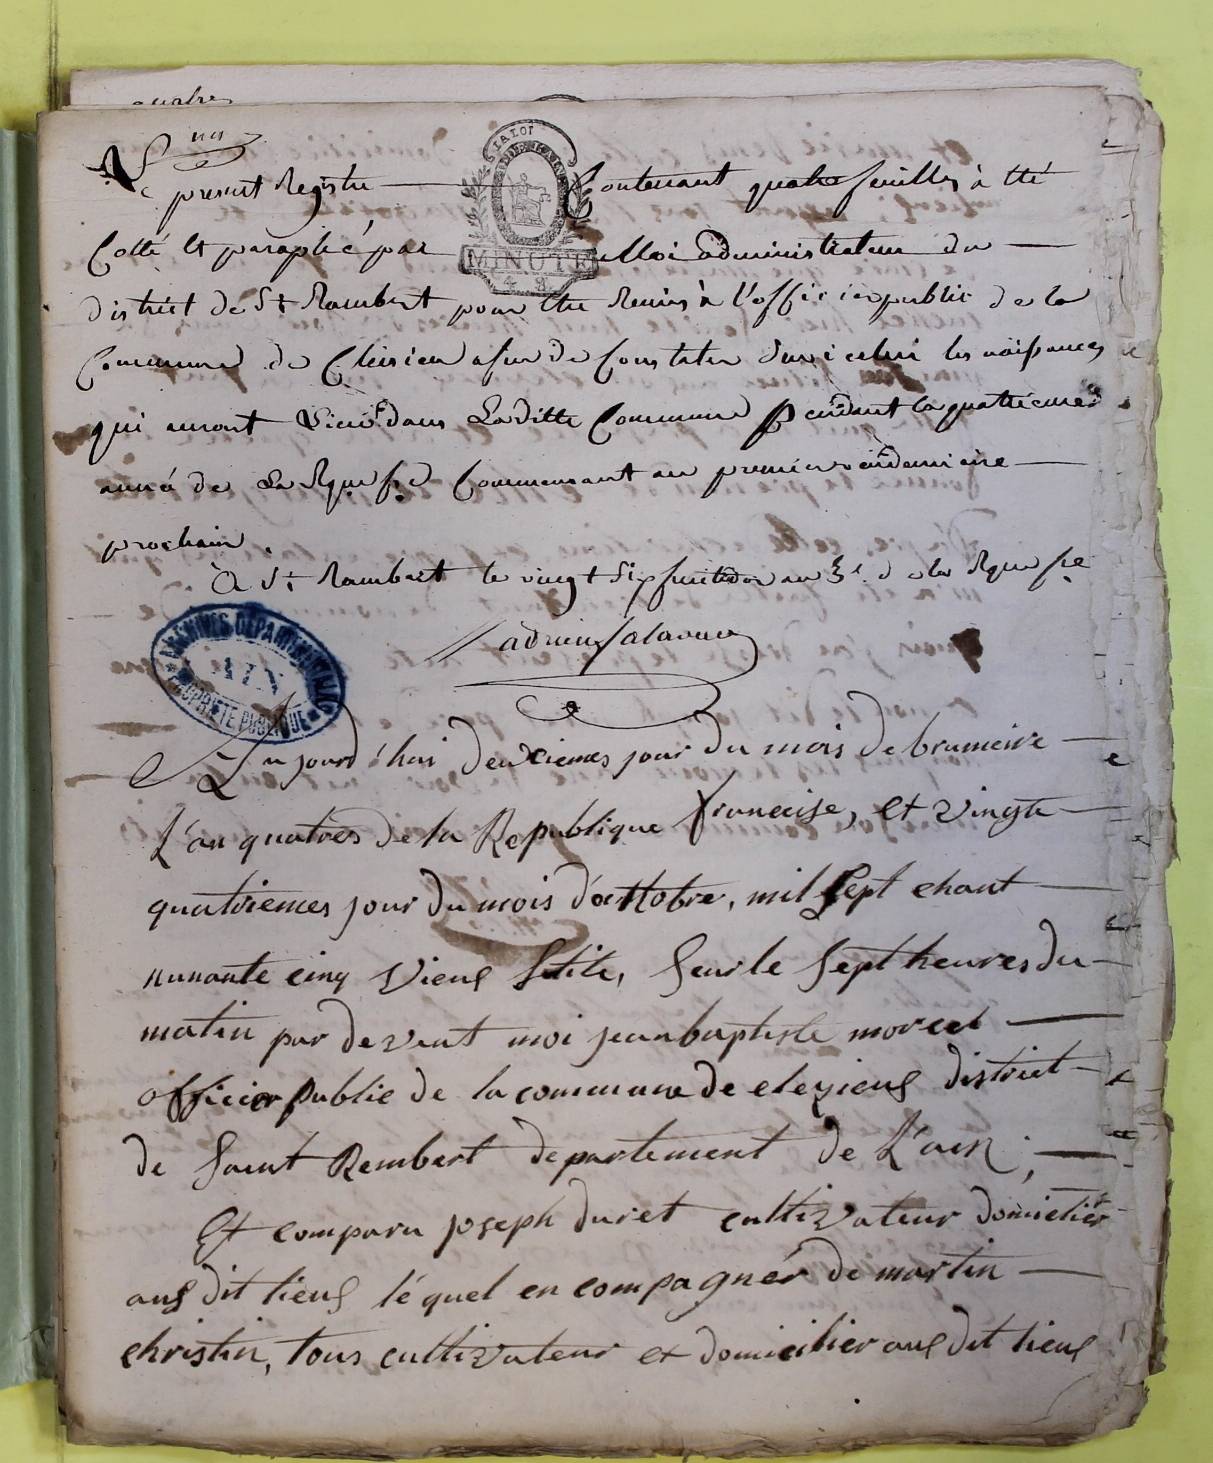 quatre
Le present Registre Contenant quatre feuilles à Eté
LA LOI
MINUTE
Cotté Et paraphé par Moi administrateur du
district de St Rambert pour Etre Remis à l'officier public de la
Commune de Cleisieu afin de Constater dans icelui les naissances
qui auront Lieu dans Laditte Commune Pendant la quattrieme
année de La Rque fse Commencant au premier vendemiaire
prochain.
A St Rambert le vingt Six fructidor an 3e de la Rque fse
ARCHIVES DEPARTEMENTALES
AIN
PROPRIETE PUBLIQUE
aujourd'hui deuxiemes jour du mois de brumeire
L'an quatres de la Republique franceise, et vingte
quatriemes jour du mois d'octtobre, mil Sept chant
nunante cinq vieux Stile, Seur le Sept heures du
matin par devant moi jean baptiste morcel
officier public de la commune de cleyzieux district
de Saint Rembert departement de L'ain,
Et comparu joseph duret cultivateur domicilier
aux dit lieux léquel en compagnér de martin
christin, tous cultivateur et domicilier aux dit lieux